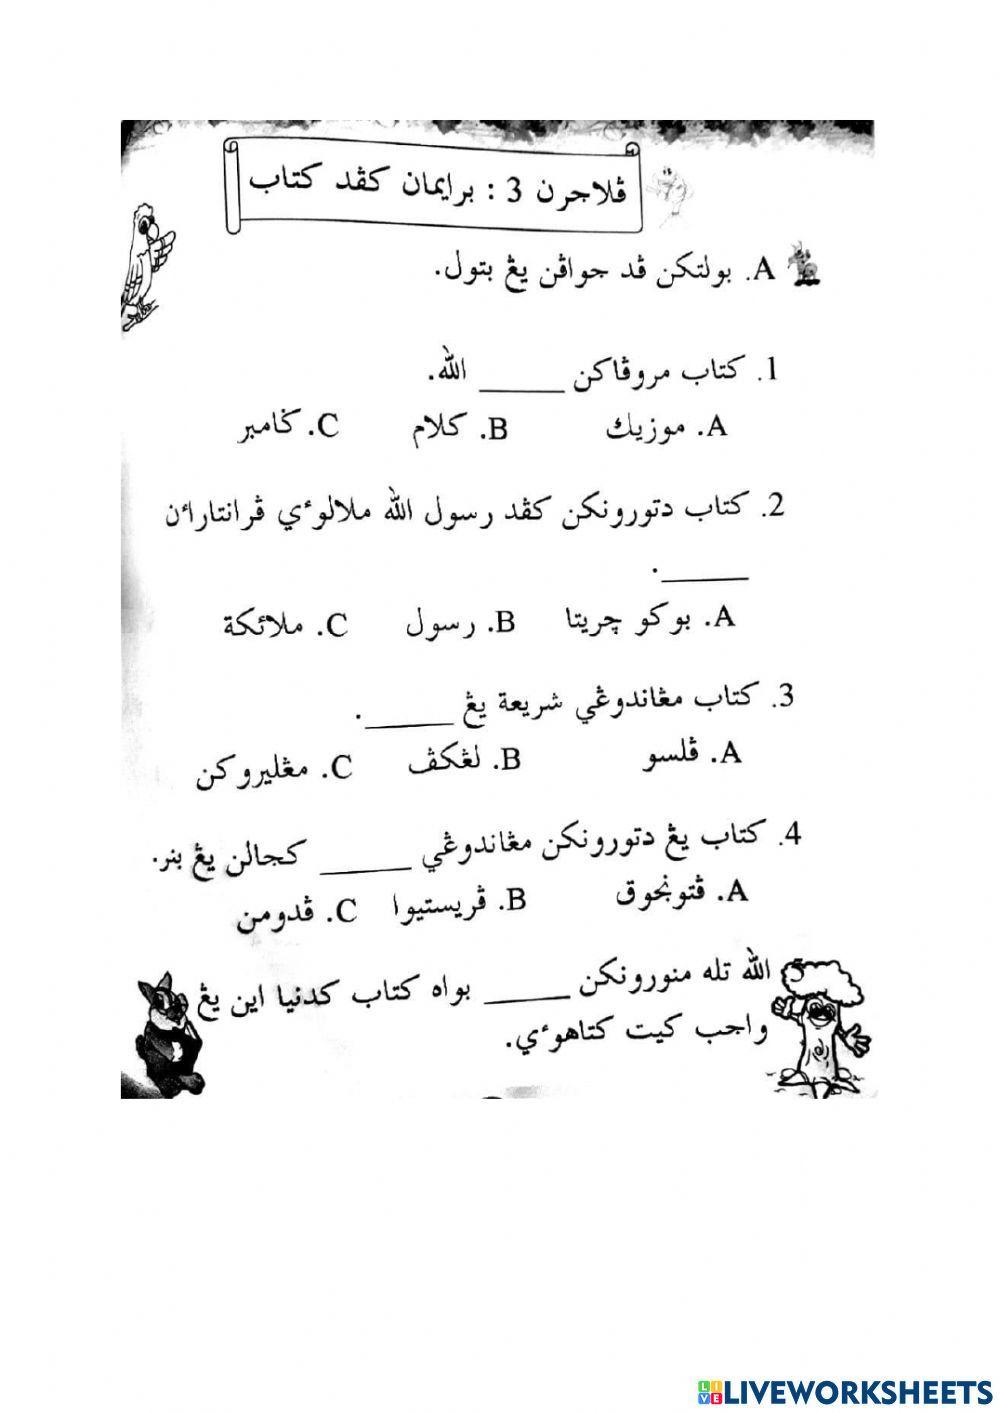 ڤلاجرن 3 : برايمان كڤد كتاب
A. بولتكن ڤد جواڤن يڠ بتول.
1. كتاب مروڤاكن ______ الله.
A. موزيك B. كلام C. ݢامبر
2. كتاب دتورونكن كڤد رسول الله ملالوءي ڤرانتاراءن
______.
A. بوكو چريتا B. رسول C. ملائكة
3. كتاب مڠاندوڠي شريعة يڠ ______.
A. ڤلسو B. لڠكڤ C. مڠليروكن
4. كتاب يڠ دتورونكن مڠاندوڠي ______ كجالن يڠ بنر.
A. ڤتونجوق B. ڤريستيوا C. ڤدومن
الله تله منورونكن ______ بواه كتاب كدنيا اين يڠ
واجب كيت كتاهوءي.
LIVEWORKSHEETS